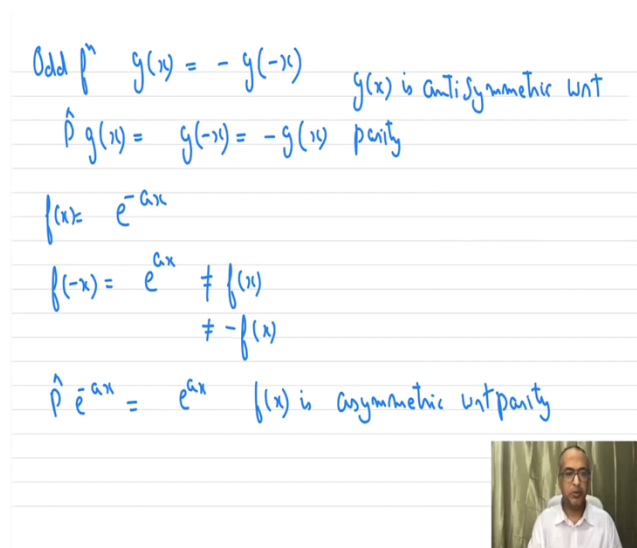 Odd fⁿ g(x) = - g(-x)
g(x) is antisymmetric wrt
P̂ g(x) = g(-x) = -g(x) parity
f(x)= e^{-ax}
f(-x) = e^{ax} ≠ f(x)
≠ -f(x)
P̂ e^{-ax} = e^{ax} f(x) is asymmetric wrt parity